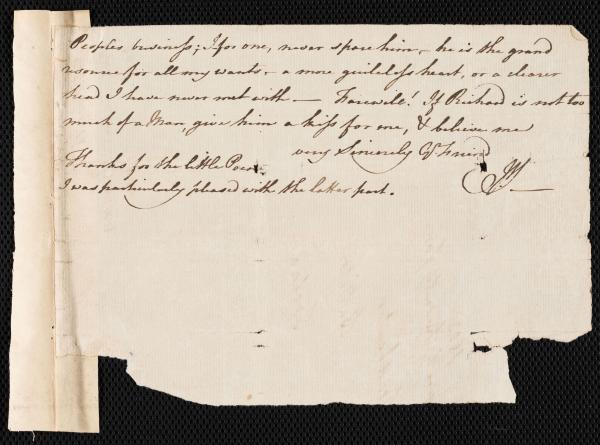 Peoples business; I for one, never spare him, - he is the grand
resource for all my wants, - a more guileless heart, or a clearer
head I have never met with — Farewell! If Richard is not too
much of a Man, give him a kiss for me, & believe me
very Sincerely Yr Friend
Thanks for the little Poem.
I was particularly pleased with the latter part.